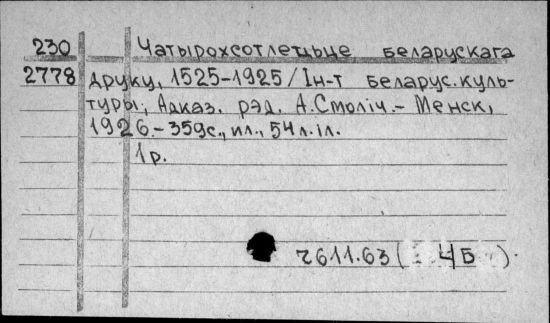 230 Чатырохсотлецьце беларускага
2778 друку, 1525-1925/Ін-т беларус.куль-
туры; Адказ. рэд. А.Столiч.- Менск,
1926.-359с., ил., 54л.іл.
1р.
2611.63 ( 4Б ).